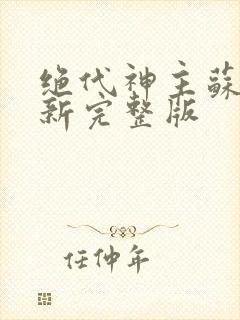 绝代神主蘇
新完整版
任仲年